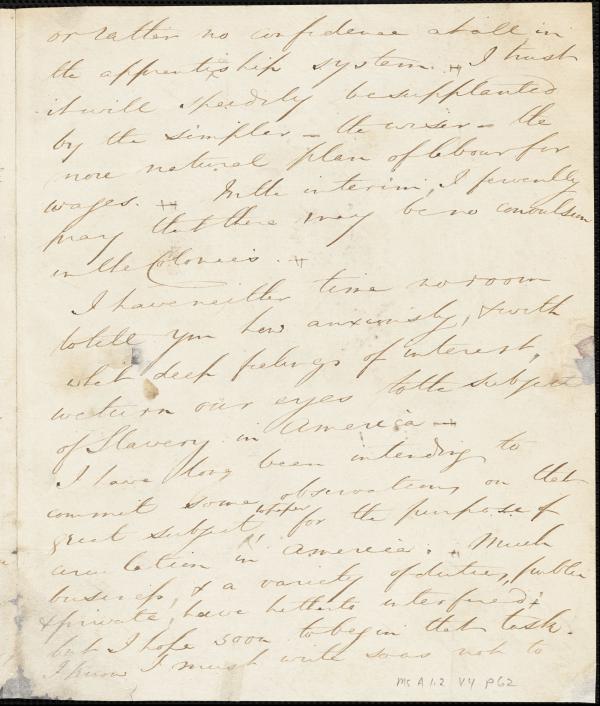 or rather no confidence at all in
the apprentiship system. I trust
it will speedily be supplanted
by the simpler – the wiser – the
more natural plan of labour for
wages. In the interim, I fervently
pray that there may be no convulsion
in the Colonies.
I have neither time nor room
to tell you how anxiously, & with
what deep feelings of interest,
we turn our eyes to the subject
of Slavery in America –
I have long been intending to
commit some observations on that
great subject to paper, for the purpose of
circulation in America. Much
business, & a variety of duties, public
& private, have hitherto interfered;
but I hope soon to begin that task.
I know I must write so as not to
Ms A 1.2 V4 p62